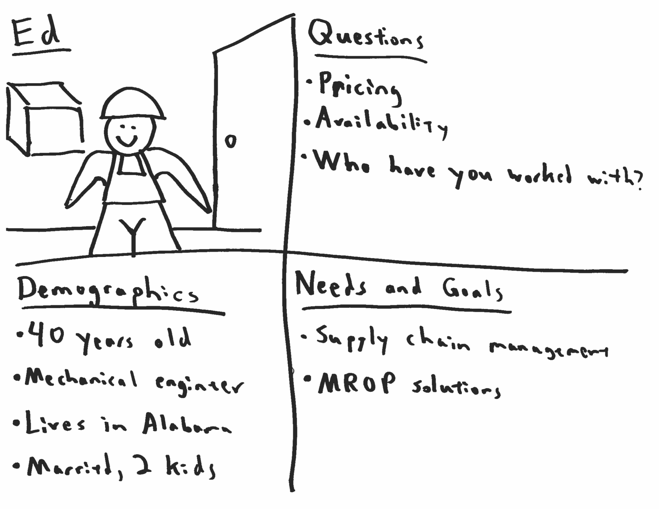 Ed
Questions
• Ppicing
• Availability
• Who have you worked with?
Demographics
• 40 years old
• Mechanical engineer
• Lives in Alabama
• Married, 2 kids
Needs and Goals
• Supply chain management
• MROP solutions